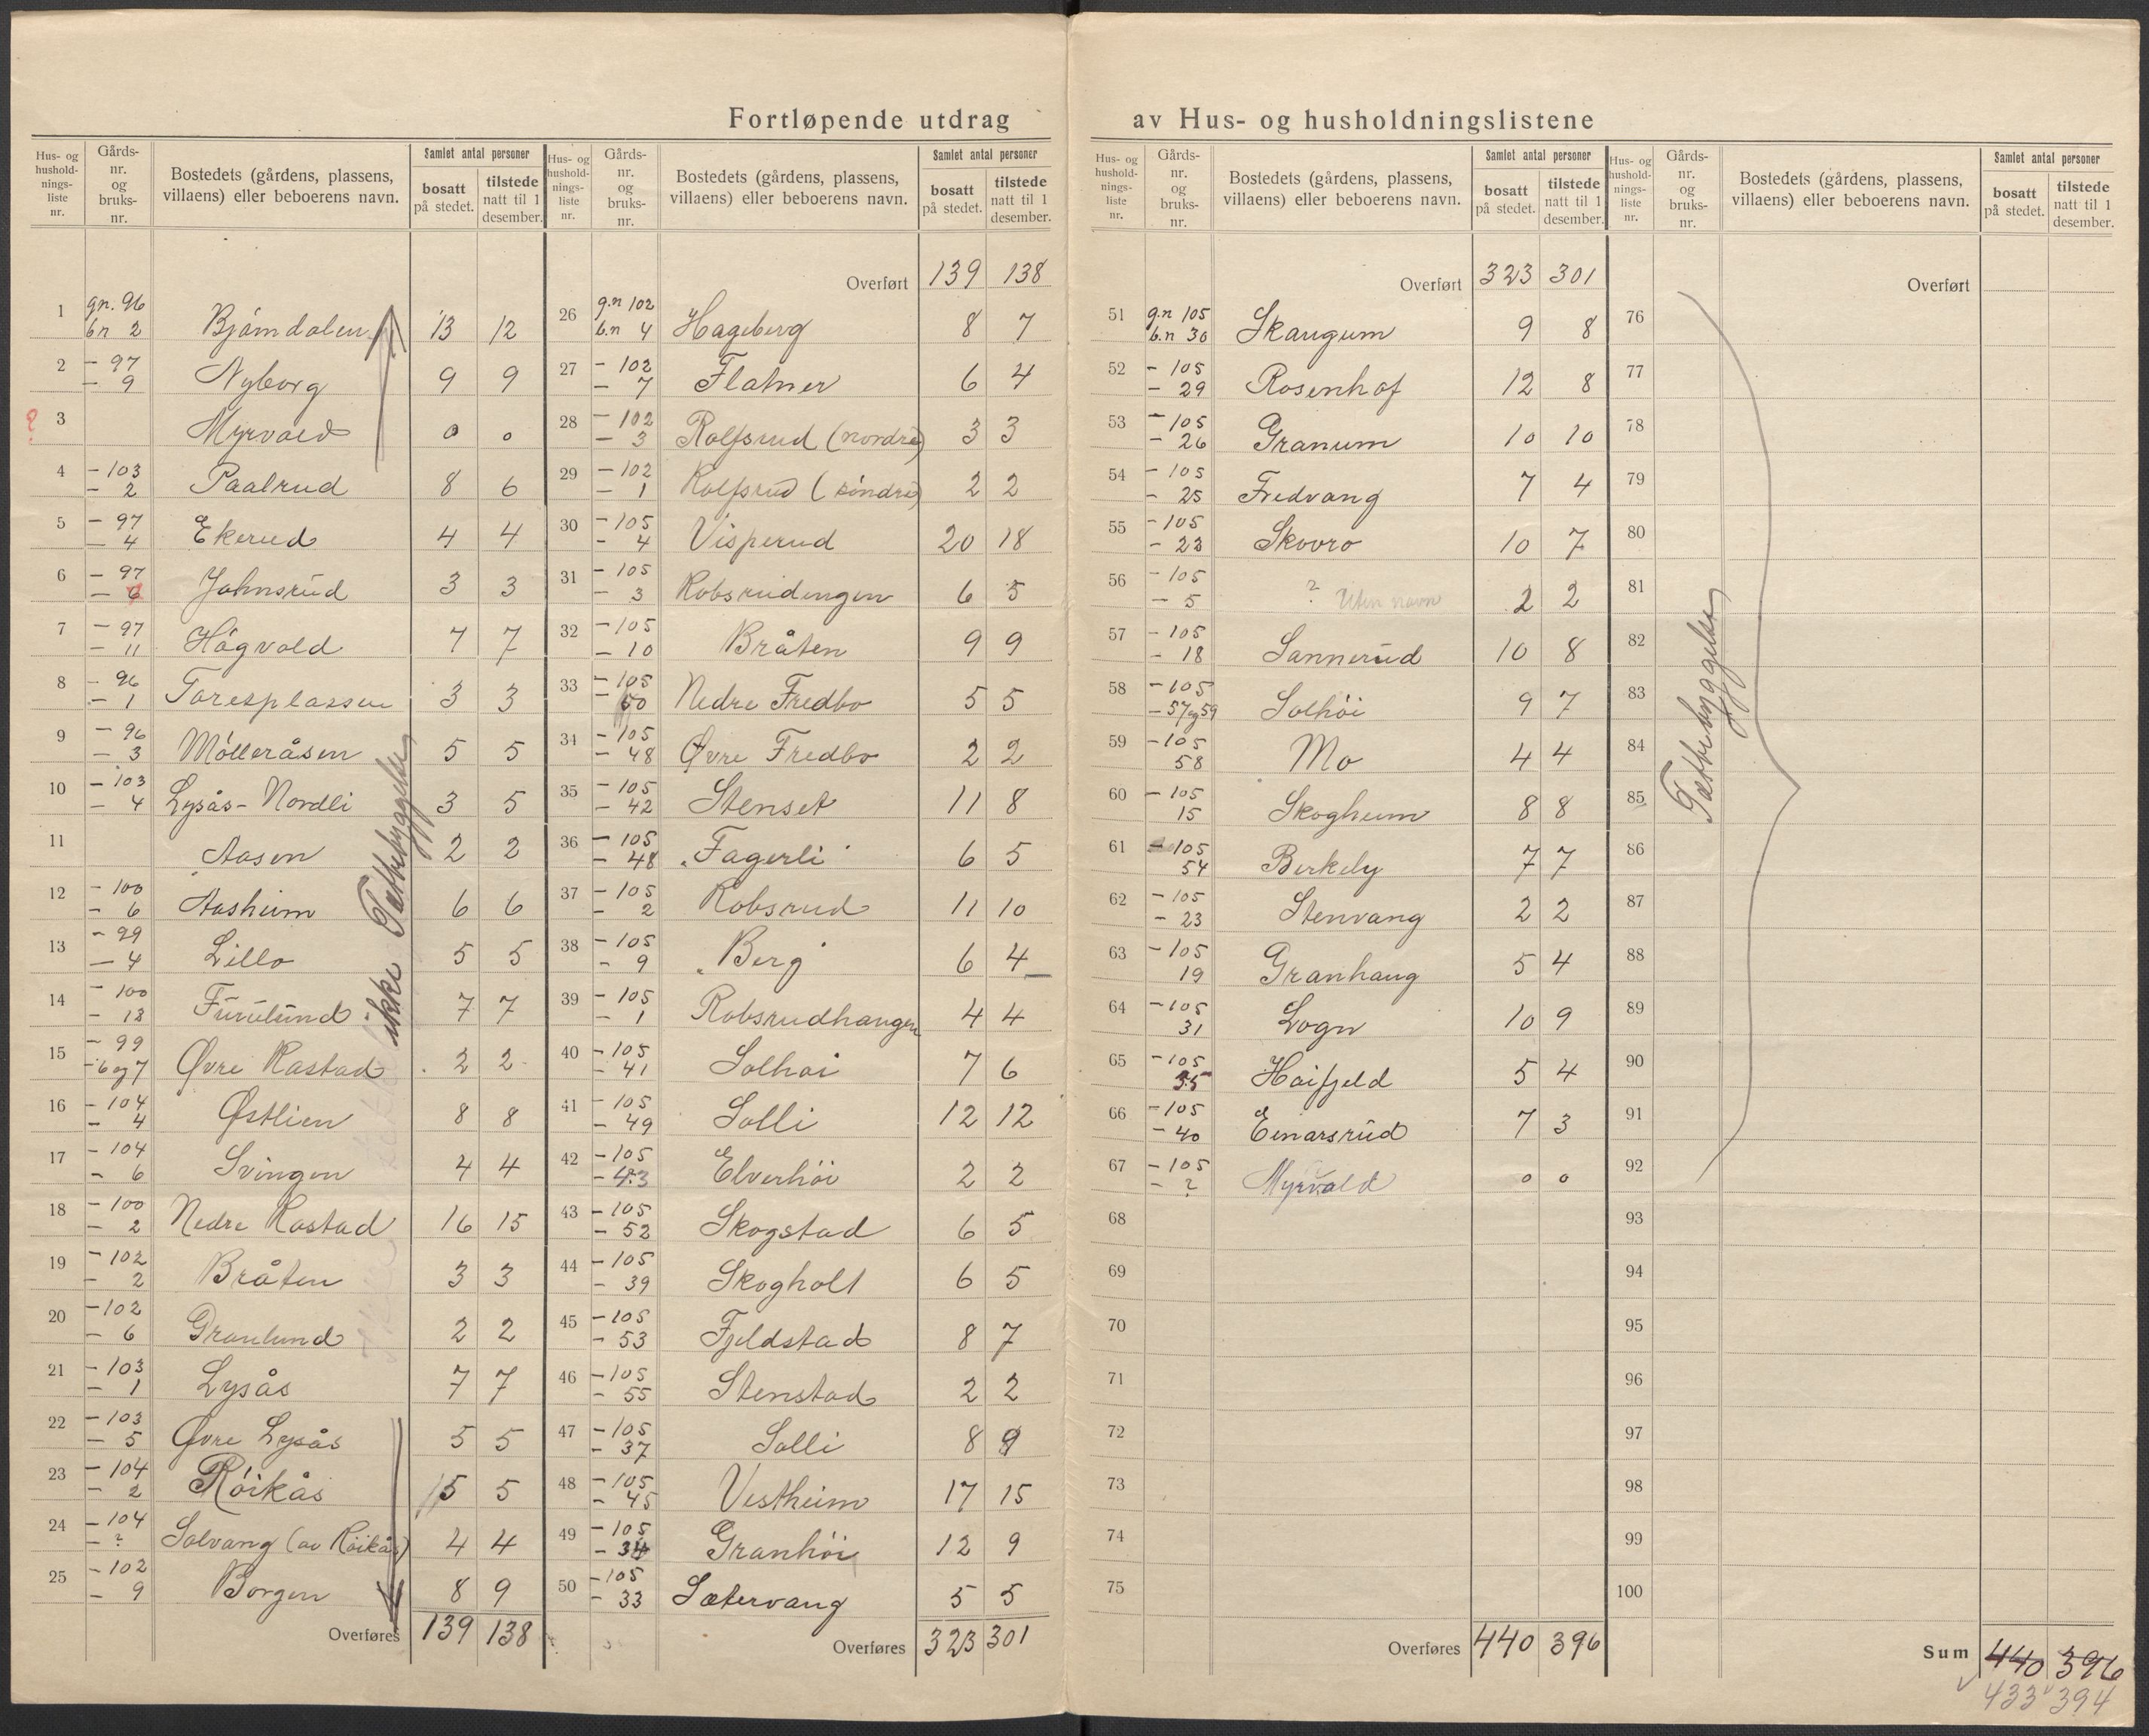 Fortløpende utdrag av Hus- og husholdningslistene
Hus- og hushold-nings-liste nr. Gårds-nr. og bruks-nr. Bostedets (gårdens, plassens, villaens) eller beboerens navn. Samlet antal personer bosatt på stedet. tilstede natt til 1 desember.
1 gn. 96 bn 2 Bjørndalen 13 12
2 - 97 - 9 Nyborg 9 9
? 3 Myrvold 0 0
4 - 103 - 2 Paalrud 8 6
5 - 97 - 4 Ekerud 4 4
6 - 97 - 6 Johnsrud 3 3
7 - 97 - 11 Högvold 7 7
8 - 96 - 1 Toresplassen 3 3
9 - 96 - 3 Mölleråsen 5 5
10 - 103 - 4 Lysås-Nordli 3 5
11 Aasen 2 2
12 - 100 - 6 Aasheim 6 6
13 - 99 - 4 Lillo 5 5
14 - 100 - 13 Furulund 7 7
15 - 99 - 6 og 7 Øvre Rastad 2 2
16 - 104 - 4 Østlien 8 8
17 - 104 - 6 Svingen 4 4
18 - 100 - 2 Nedre Rastad 16 15
19 - 102 - 2 Bråten 3 3
20 - 102 - 6 Granlund 2 2
21 - 103 - 1 Lysås 7 7
22 - 103 - 5 Øvre Lysås 5 5
23 - 104 - 2 Röikås 5 5
24 - 104 - ? Solvang (av Röikås) 4 4
25 - 102 - 9 Borgen 8 9
Overføres 139 138
ikke Tættbebyggelse
Hus- og hushold-nings-liste nr. Gårds-nr. og bruks-nr. Bostedets (gårdens, plassens, villaens) eller beboerens navn. Samlet antal personer bosatt på stedet. tilstede natt til 1 desember.
Overført 139 138
26 g.n 102 b.n 4 Hageberg 8 7
27 - 102 - 7 Flatner 6 4
28 - 102 - 3 Rolfsrud (nordre) 3 3
29 - 102 - 1 Rolfsrud (söndre) 2 2
30 - 105 - 4 Visperud 20 18
31 - 105 - 3 Robsrudengen 6 5
32 - 105 - 10 Bråten 9 9
33 - 105 - 60 Nedre Fredbo 5 5
34 - 105 - 48 Øvre Fredbo 2 2
35 - 105 - 42 Stenset 11 8
36 - 105 - 48 Fagerli 6 5
37 - 105 - 2 Robsrud 11 10
38 - 105 - 9 Berg 6 4
39 - 105 - 1 Robsrudhaugen 4 4
40 - 105 - 41 Solhoi 7 6
41 - 105 - 49 Solli 12 12
42 - 105 - 43 Elverhöi 2 2
43 - 105 - 52 Skogstad 6 5
44 - 105 - 39 Skogholt 6 5
45 - 105 - 53 Fjeldstad 8 7
46 - 105 - 55 Stenstad 2 2
47 - 105 - 37 Solli 8 9
48 - 105 - 45 Vestheim 17 15
49 - 105 - 34 Granhöi 12 9
50 - 105 - 33 Sætervang 5 5
Overføres 323 301
Hus- og hushold-nings-liste nr. Gårds-nr. og bruks-nr. Bostedets (gårdens, plassens, villaens) eller beboerens navn. Samlet antal personer bosatt på stedet. tilstede natt til 1 desember.
Overført 323 301
51 g.n 105 b.n 30 Skaugum 9 8
52 - 105 - 29 Rosenhof 12 8
53 - 105 - 26 Granum 10 10
54 - 105 - 25 Fredvang 7 4
55 - 105 - 22 Skovro 10 7
56 - 105 - 5 ? Uten navn 2 2
57 - 105 - 18 Sannerud 10 8
58 - 105 - 57 og 59 Solhöi 9 7
59 - 105 58 Mo 4 4
60 - 105 15 Skogheim 8 8
61 - 105 54 Birkely 7 7
62 - 105 - 23 Stenvang 2 2
63 - 105 19 Granhaug 5 4
64 - 105 31 Logn 10 9
65 - 105 35 Hoifjeld 5 4
66 - 105 - 40 Einarsrud 7 3
67 - 105 - ? Myrvold 0 0
68
69
70
71
72
73
74
75
Overføres 440 396
Hus- og hushold-nings-liste nr. Gårds-nr. og bruks-nr. Bostedets (gårdens, plassens, villaens) eller beboerens navn. Samlet antal personer bosatt på stedet. tilstede natt til 1 desember.
Overført
76
77
78
79
80
81
82
83
84
85
86
87
88
89
90
91
92
93
94
95
96
97
98
99
100
Tættbebyggelse
Sum 440 396
433 394